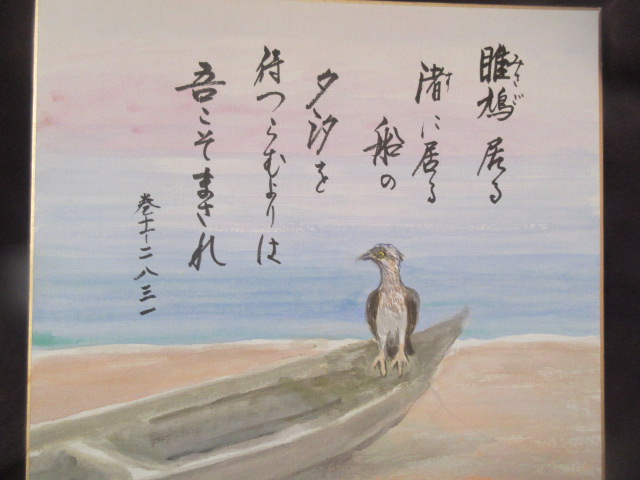 雎鳩 居る
みさご
渚に居る
す
船の
夕汐を
待つらむよりは
吾こそまされ
巻十一 二八三一